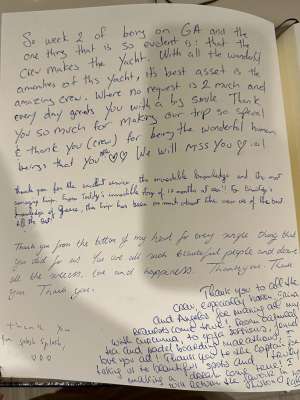 So week 2 of being on GA and the
one thing that is so evident is: that the
Crew makes the Yacht. With all the wonderful
amenities of this Yacht, it's best asset is the
amazing crew. Where no request is 2 much and
every day greets you with a big smile. Thank
you so much for making our trip so special
& thank you (crew) for being the wonderful human
beings that you are ♡♡ We will miss you ♡
Thank you for the excellent service, the incredible knowledge and the most
amazing trip. From Teddy's incredible
knowledge of Greece, the trip has been so much about the
all the best!
Thank you from the bottom of my heart for every single thing that
you did for us. You are all such beautiful people and deserve
all the success, love and happiness. Thank you. Thank
you. Thank you.
Thank you
for splish splash,
♡♡♡
Thank you to all the
crew, especially
and Angelos for making all my
requests come true! From oatmeal
with curcuma, to yoga sessions,
tea and padel boarding marathons! I
love you all! Thank you to the Captain for
taking us to beautiful spots and
making this dream come true! I
will return the